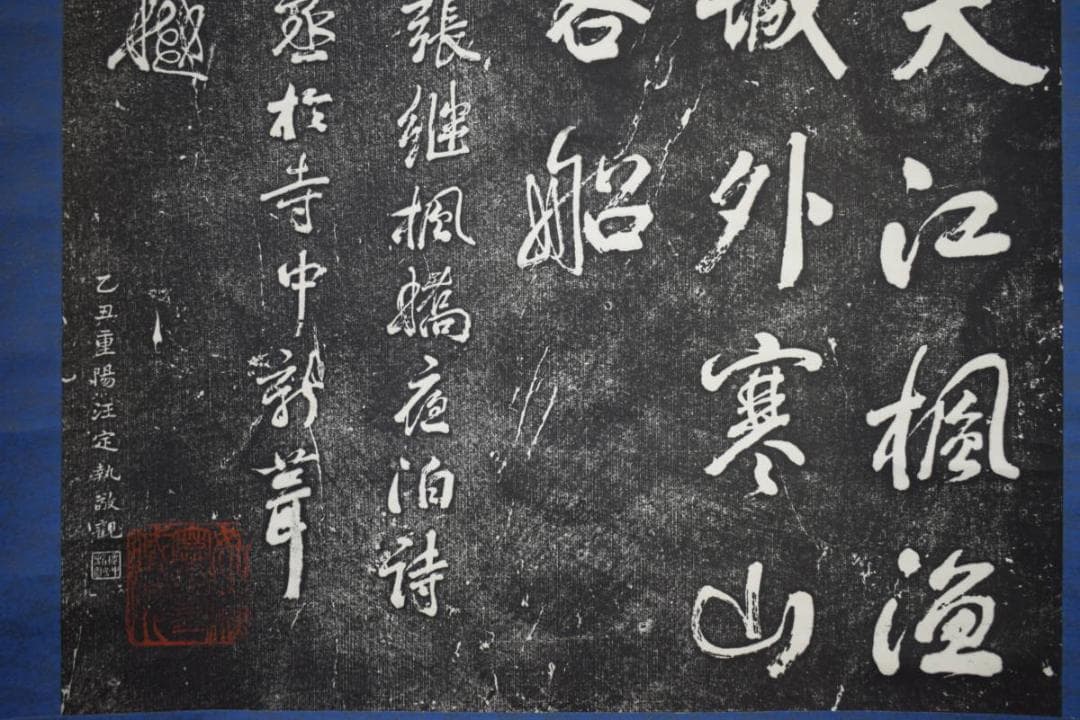 天江楓漁
城外寒山
客船
張継楓橋夜泊詩
丞於寺中新葺
乙丑重陽汪定執敬觀